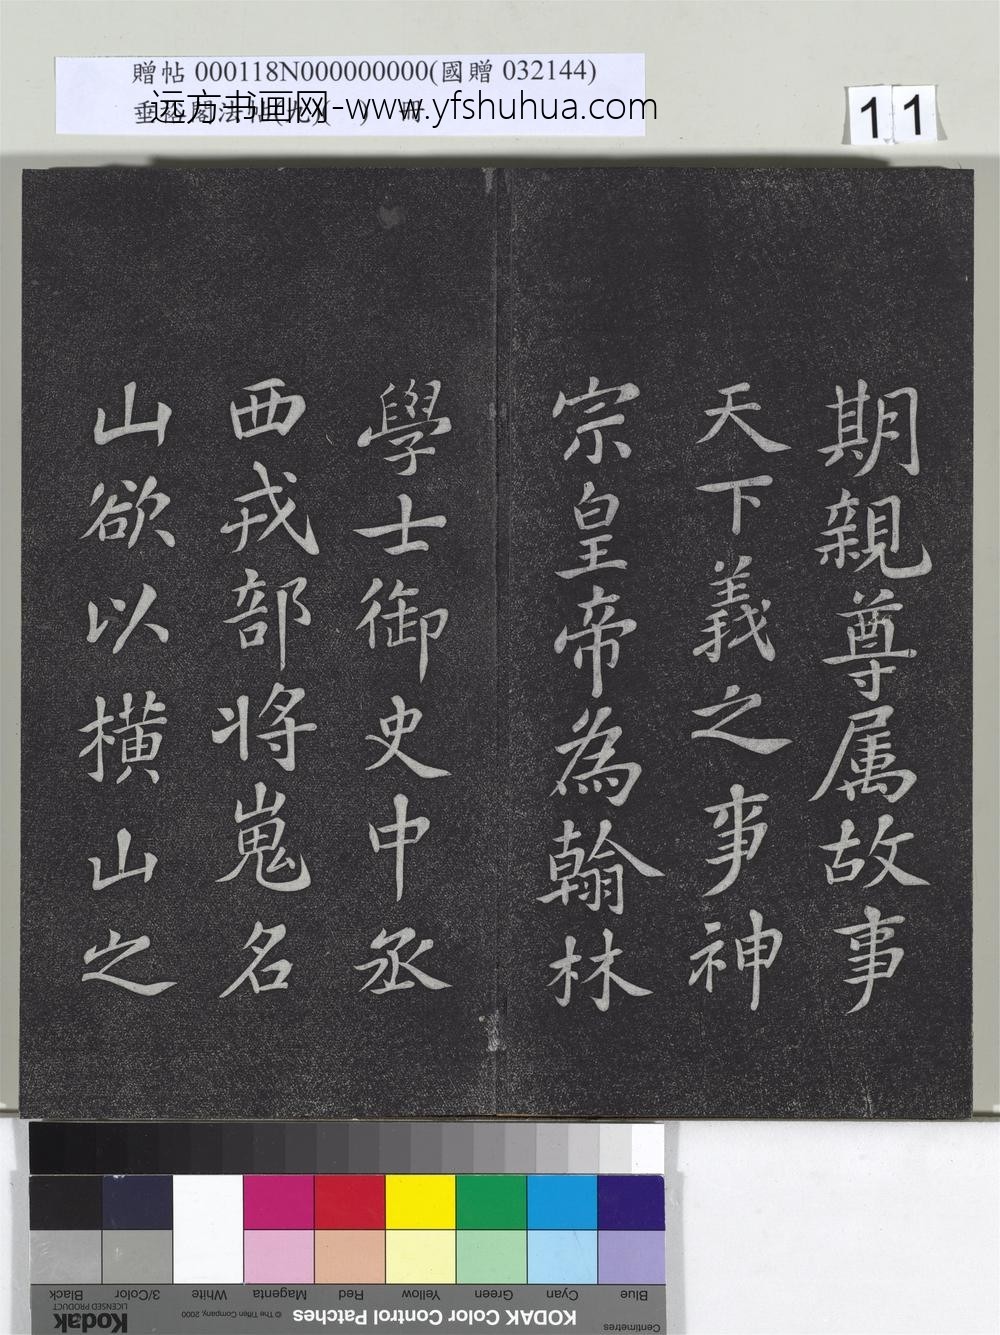 贈帖 000118N000000000(國贈 032144)
远方书画网-www.yfshuhua.com
11
期親尊属故事
天下義之事神
宗皇帝為翰林
學士御史中丞
西戎部将嵬名
山欲以橫山之
Black
3/Color
White
Magenta
Red
Yellow
Green
Cyan
Blue
Kodak
LICENSED PRODUCT
© The Tiffen Company, 2000
KODAK Color Control Patches
Centimetres